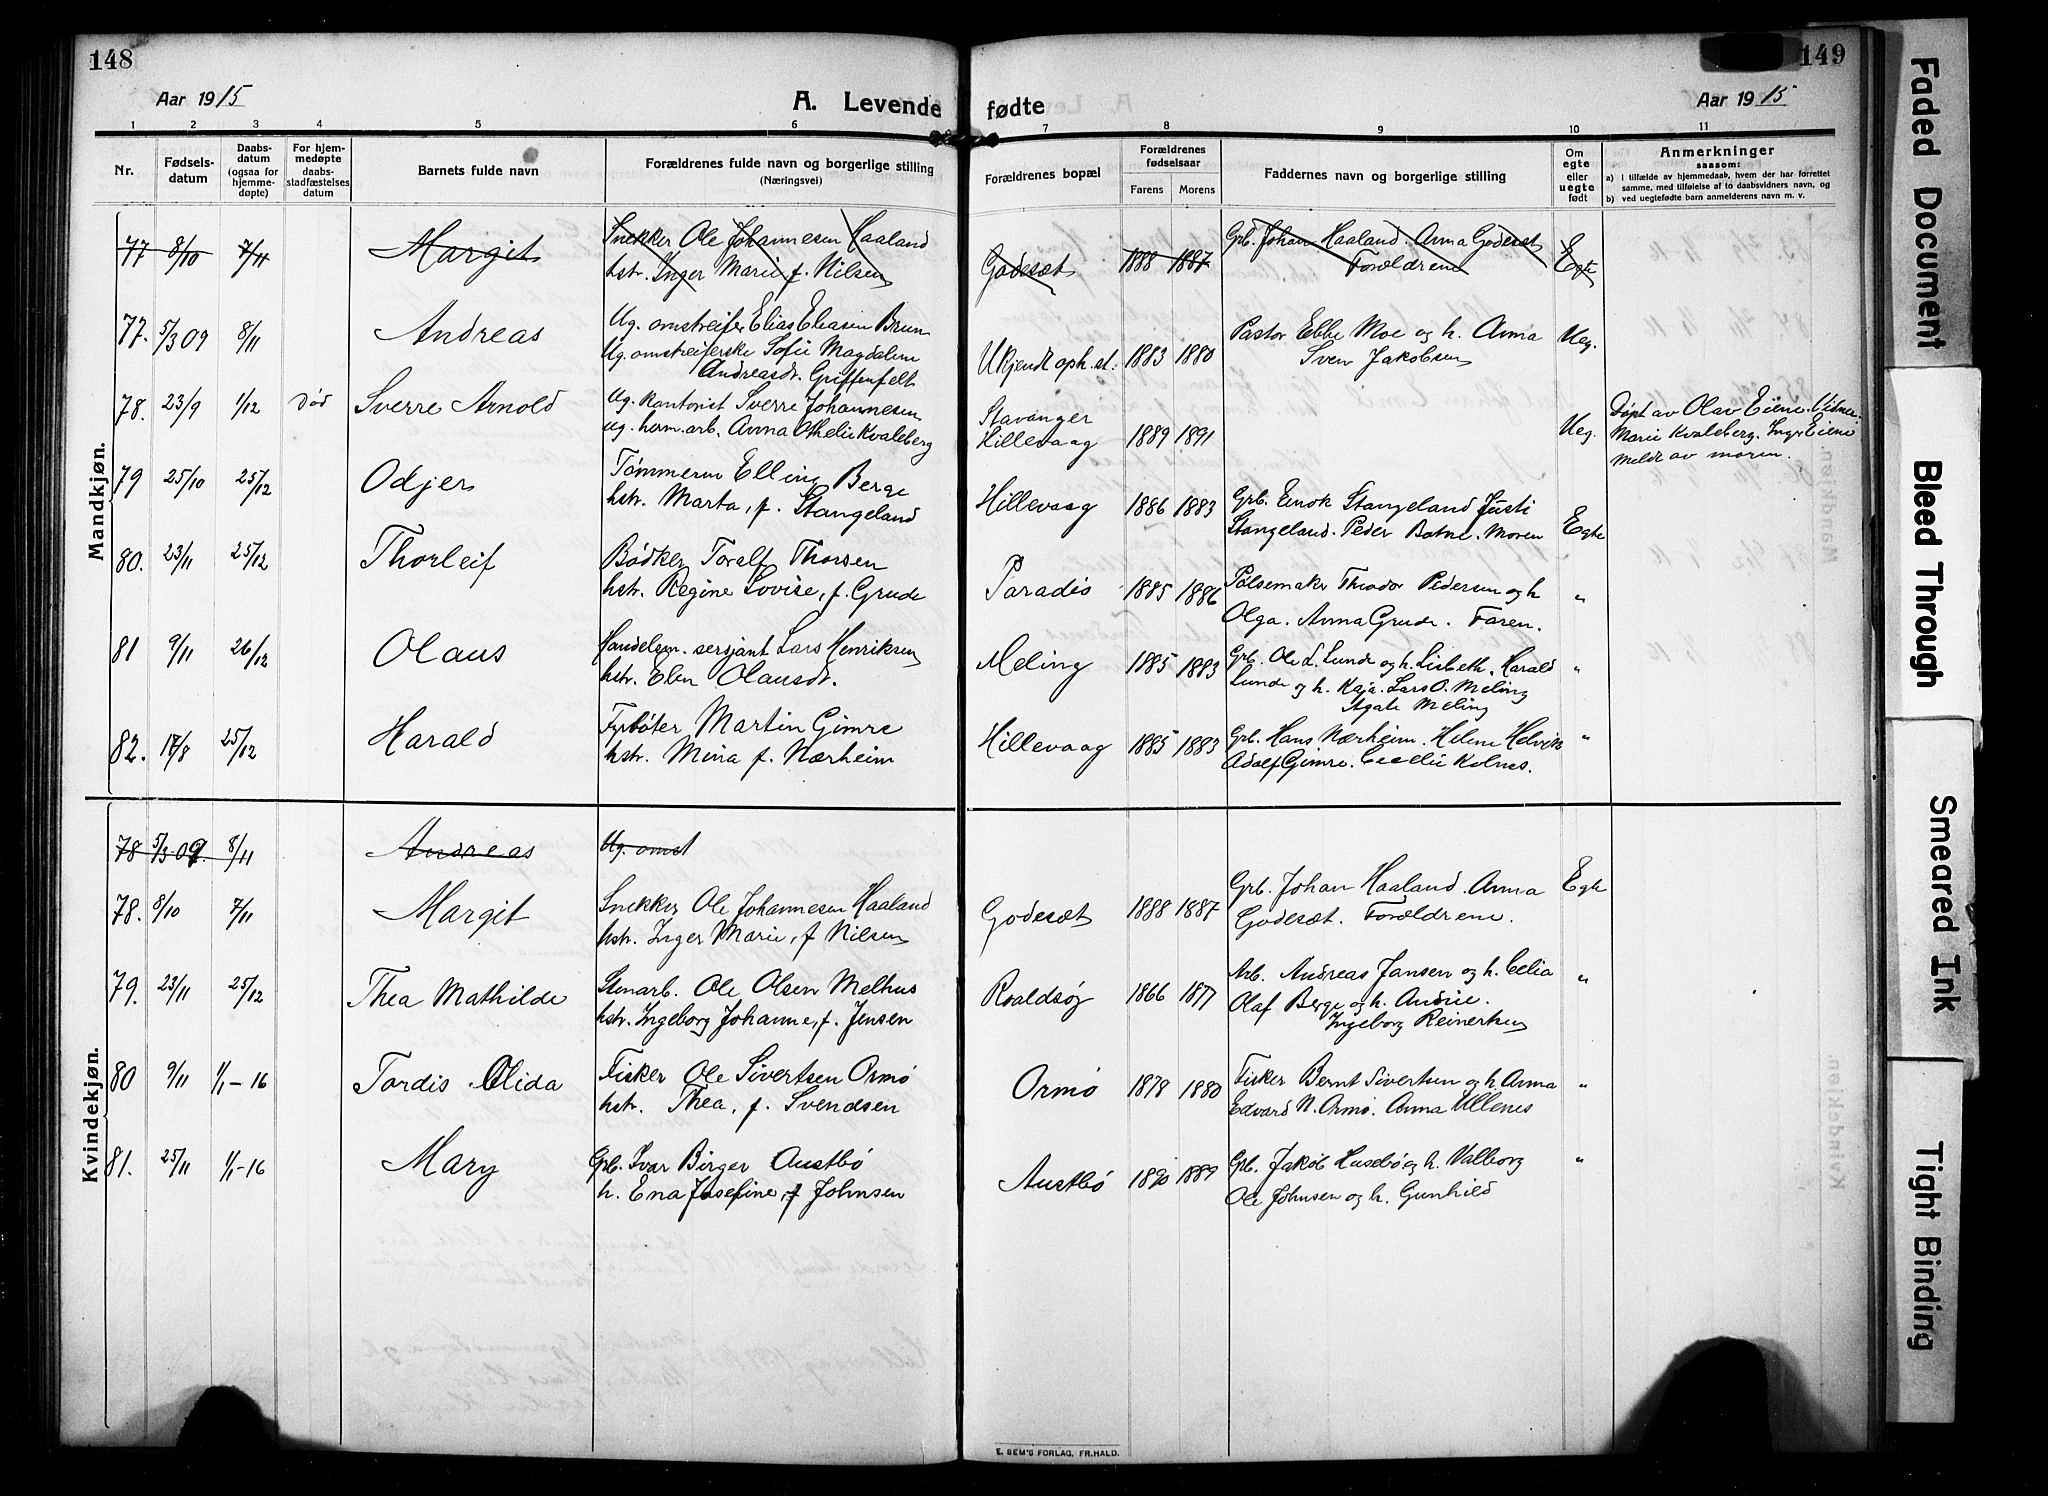 148
149
Aar 1915
A. Levende fødte
Aar 1915
1 2 3 4 5 6 7 8 9 10 11
Nr.
Fødsels-
datum
Daabs-
datum
(ogsaa for
hjemme-
døpte)
For hjem-
medøpte
daabs-
stadfæstelses
datum
Barnets fulde navn
Forældrenes fulde navn og borgerlige stilling
(Næringsvei)
Forældrenes bopæl
Forældrenes
fødselsaar
Farens Morens
Faddernes navn og borgerlige stilling
Om
egte
eller
uegte
født
Anmerkninger
saasom:
a) i tilfælde av hjemmedaab, hvem der har forrettet
samme, med tilføielse af to daabsvidners navn, og
b) ved uegtefødte barn anmelderens navn m. v.
Mandkjøn.
77 8/10 7/11 Margit Snekker Ole Johannesen Haaland Grb. Johan Haaland. Anna Godesæt Egte
hstr. Inger Marie f. Nilsen Godesæt 1888 1887 Forældrene
77. 5/3 09 8/11 Andreas Ug. omstreifer Elias Eliasen Brun Pastor Ebbe Moe og h. Anna Ueg.
Ug. omstreiferske Sofie Magdalene Ukjendt oph. st. 1883 1880 Sven Jakobsen
Andreasdr. Griffenfelt
78. 23/9 1/12 Død Sverre Arnold Ug. kontorist Sverre Johannesen Stavanger Døpt av Olav Eiene.
ug. hom. arb. Anna Othelie Kvaleberg Hillevaag 1889 1891 Ueg. Marie Kvaleberg. Inga Eiene
meldt av moren.
79 25/10 25/12 Odjer Tømmerm Elling Berge
hstr. Marta, f. Stangeland Hillevaag 1886 1883 Grb. Enok Stangeland
Stangeland. Peder Botne. Moren Egte
80. 23/11 25/12 Thorleif Bødker Toralf Thorsen
hstr. Regine Lovise, f. Grude Paradis 1885 1886 Pølsemaker Theodor Pedersen og h "
Olga. Anna Grude. Faren.
81 9/11 26/12 Olaus Handelsm. sersjant Lars Henriksen
hstr. Elen Olausdr. Meling 1885 1883 Grb. Ole L. Lunde og h. Lisbeth. Harald "
Lunde og h. Kaja. Lars O. Meling
Agate Meling
82. 17/8 25/12 Harald Fyrbøter Martin Gimre
hstr. Mina f. Nærheim Hillevaag 1885 1883 Grb. Hans Nærheim. Helene Helvik "
Adolf Gimre. Cecilie Kolnes.
Kvindekjøn.
78 5/3 09. 8/11 Andreas Ug. omst
78. 8/10 7/11 Margit Snekker Ole Johannesen Haaland Grb. Johan Haaland. Anna Egte
hstr. Inger Marie, f Nilsen Godesæt 1888 1887 Godesæt. Forældrene.
79. 23/11 25/12 Thea Mathilde Stenarb. Ole Olsen Melhus Arb. Andreas Jansen og h. Celia "
hstr. Ingeborg Johanne, f. Jensen Roaldsøy 1866 1877 Olaf Berge og h. Andrie.
Ingeborg Reinertsen
80 9/11 1/1-16 Tordis Olida Fisker Ole Sivertsen Ormø
hstr. Thea, f. Svendsen Ormø 1878 1880 Fisker Bernt Sivertsen og h. Anna "
Edvard N. Ormø. Anna Ullenes
81. 25/11 1/1-16 Mary Grb. Ivar Birger Austbø
h. Ena Josefine, f Johnsen Austbø 1890 1889 Grb. Jakob Husebø og h. Valborg "
Ole Johnsen og h. Gunhild
E. SEM'S FORLAG, FR.HALD.
Faded Document
Bleed Through
Smeared Ink
Tight Binding